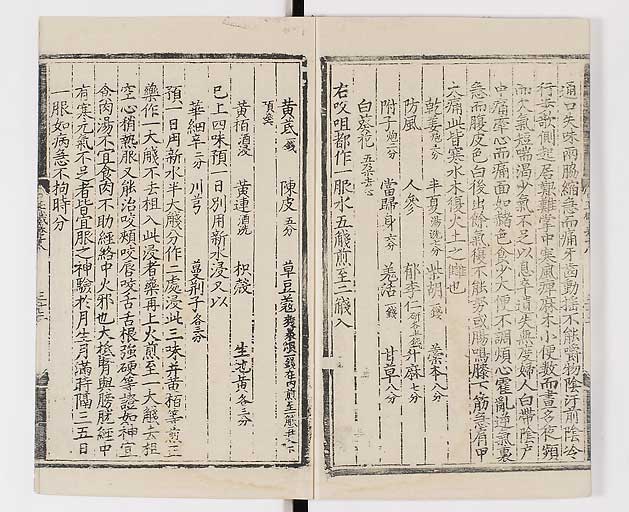 涌口失味兩脇縮急而痛牙齒動搖不能嚼物陰汗前陰冷
行步欹側起居艱難掌中寒風痺麻木小便數而晝多夜頻
而欠氣短喘渴少氣不足以息卒遺失無度婦人白帶陰戶
中痛牽心而痛面如赭色食少大便不調煩心霍亂逆氣裏
急而腹皮色白後出餘氣腹不能努或腸鳴膝下筋急肩甲
大痛此皆寒水木復火土之讎也
乾姜 半夏湯洗 柴胡 藁本八分
防風 人參 郁李仁 升麻七分
附子炮二分 當歸身六分 羌活一錢 甘草八分
白葵花五朵去心
右㕮咀都作一服水五盞煎至二盞入
黃芪一錢 陳皮五分 草豆蔻
頂炙
黃栢酒浸 黃連酒洗 枳殼 生地黃各三分
已上四味預一日別用新水浸又以
華細辛二分 川芎 蔓荊子各三分
預一日用新水半大盞分作二處浸此三味并黃栢等煎正
藥作一大盞不去柤入此浸者藥再上火煎至一大盞去柤
空心稍熱服又能治咬頰咬唇咬舌舌根強硬等證如神宜
食肉湯不宜食肉不助經絡中火邪也大抵腎與膀胱經中
有寒元氣不足者皆宜服之神驗於月生月滿時隔三五日
一服如病急不拘時分